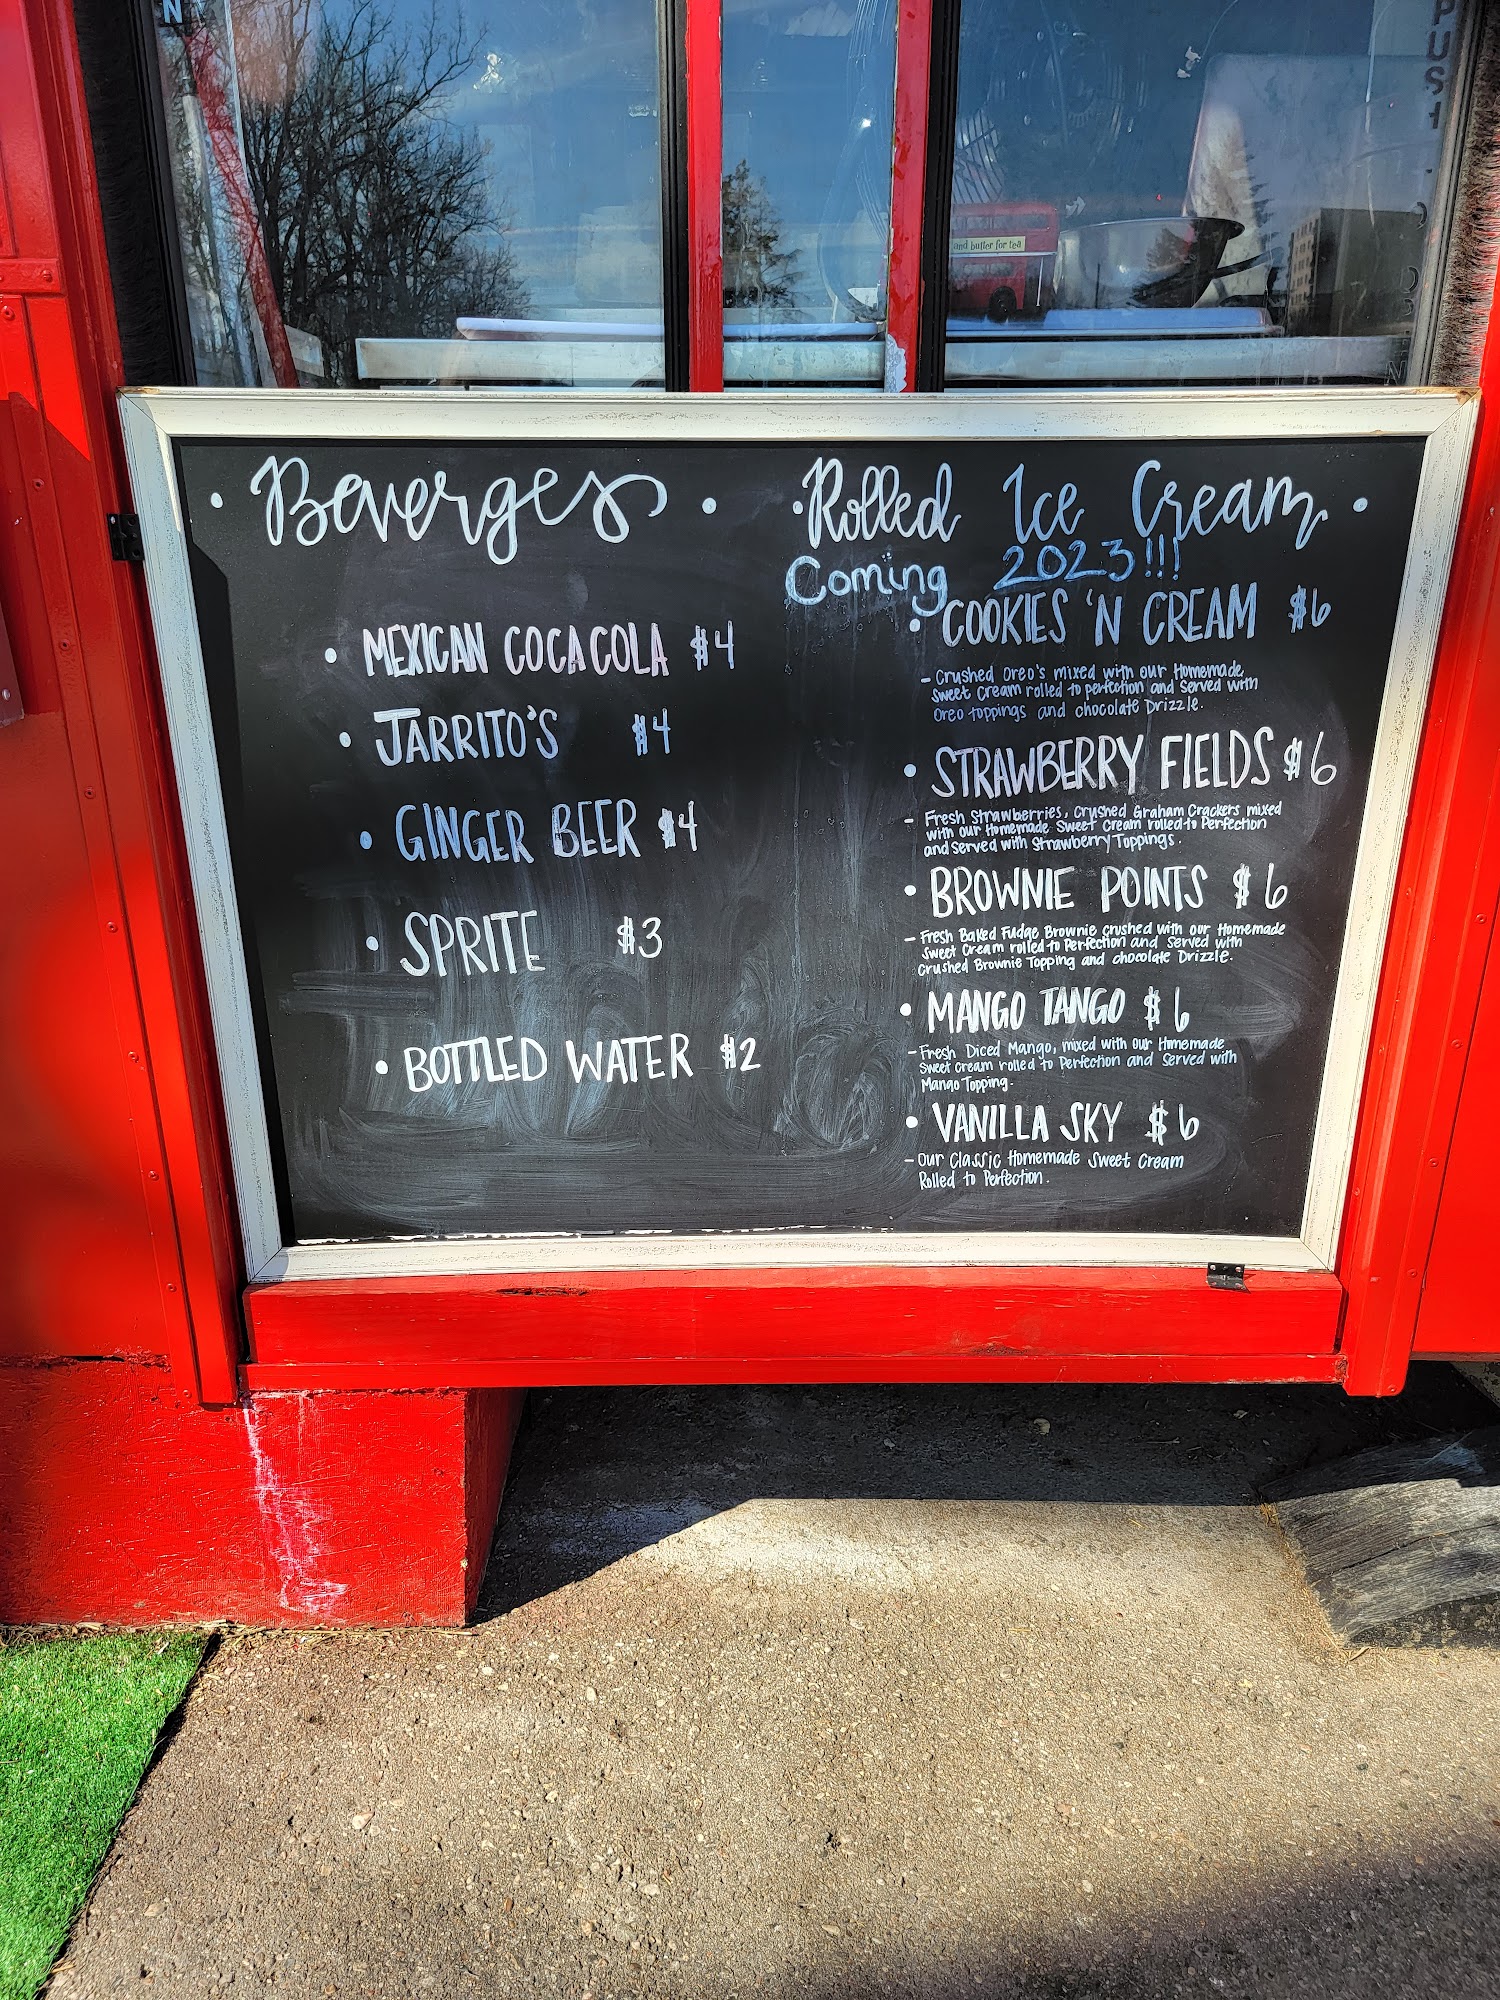 and butter for tea
• Beverges •
• MEXICAN COCA COLA $4
• JARRITO'S $4
• GINGER BEER $4
• SPRITE $3
• BOTTLED WATER $2
• Rolled Ice Cream •
Coming 2023!!!
• COOKIES 'N CREAM $6
- Crushed Oreo's mixed with our Homemade
Sweet Cream rolled to perfection and served with
Oreo toppings and chocolate Drizzle.
• STRAWBERRY FIELDS $6
- Fresh Strawberries, Crushed Graham Crackers mixed
with our Homemade Sweet Cream rolled to Perfection
and Served with Strawberry Toppings.
• BROWNIE POINTS $6
- Fresh Baked Fudge Brownie crushed with our Homemade
Sweet Cream rolled to Perfection and Served with
Crushed Brownie Topping and chocolate Drizzle.
• MANGO TANGO $6
- Fresh Diced Mango, mixed with our Homemade
Sweet Cream rolled to Perfection and Served with
Mango Topping.
• VANILLA SKY $6
- Our Classic Homemade Sweet Cream
Rolled to Perfection.